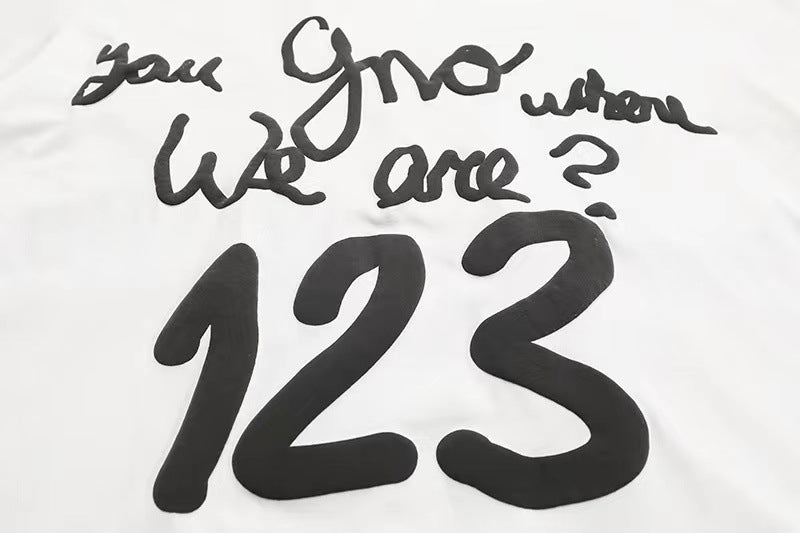 you Gno where
We are?
123